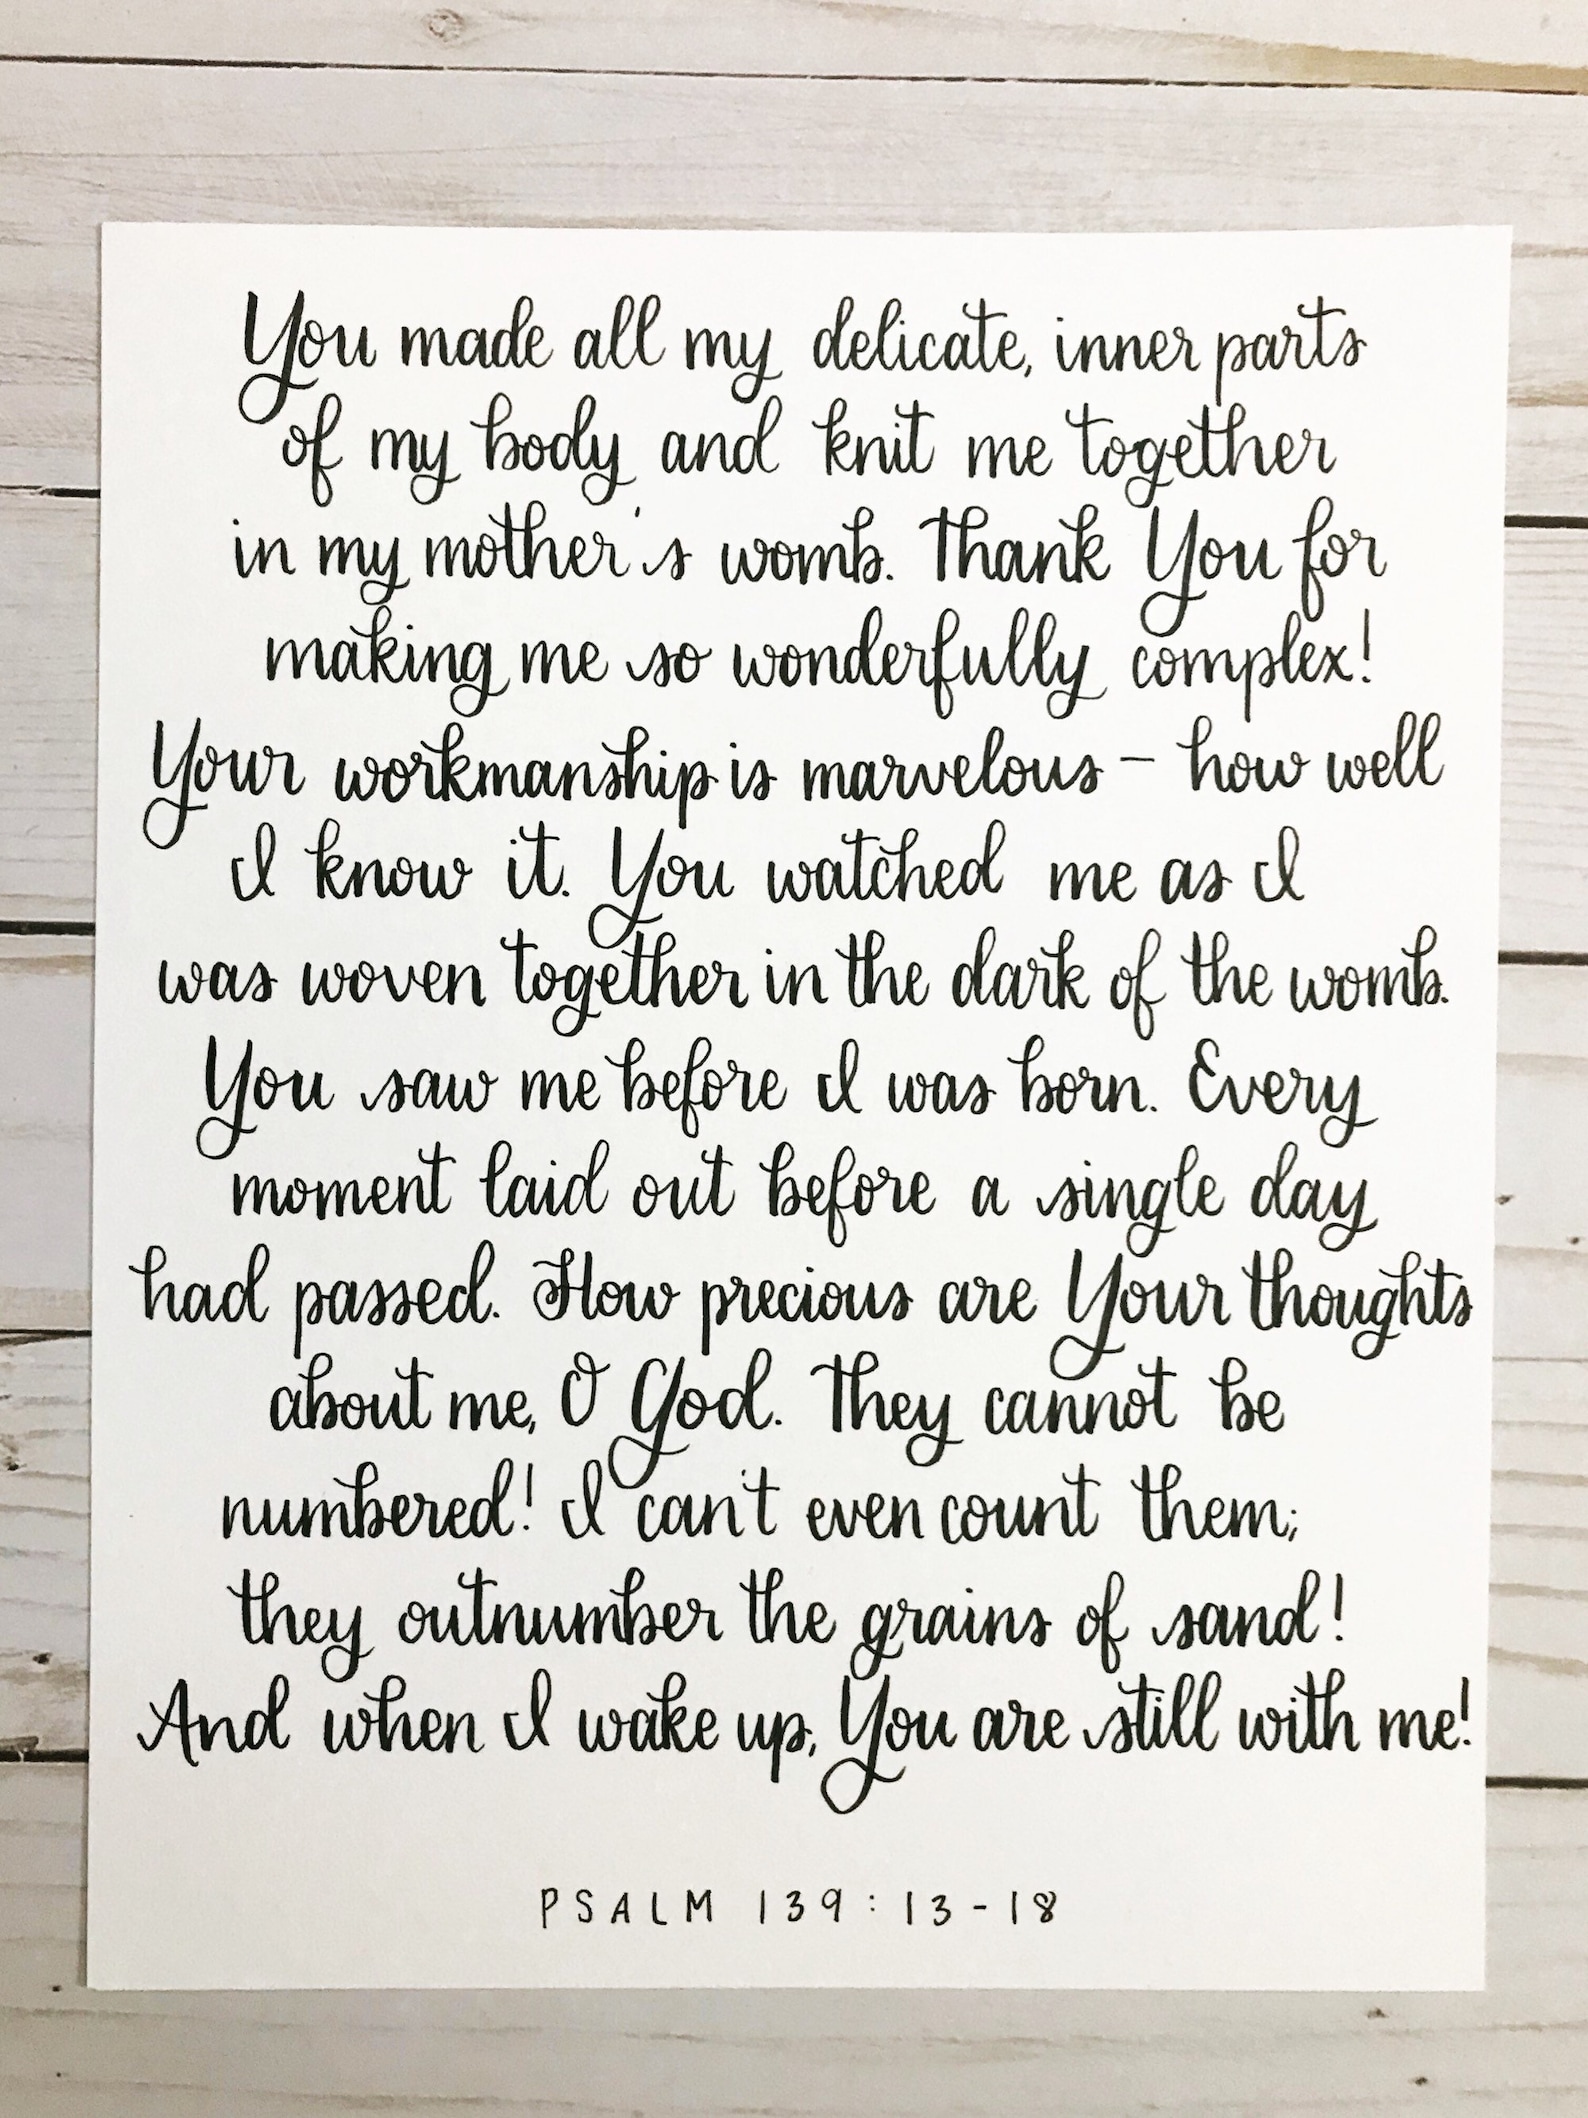 You made all my delicate, inner parts
of my body and knit me together
in my mother's womb. Thank You for
making me so wonderfully complex!
Your workmanship is marvelous - how well
I know it. You watched me as I
was woven together in the dark of the womb.
You saw me before I was born. Every
moment laid out before a single day
had passed. How precious are Your thoughts
about me, O God. They cannot be
numbered! I can't even count them;
they outnumber the grains of sand!
And when I wake up, You are still with me!
PSALM 139:13-18